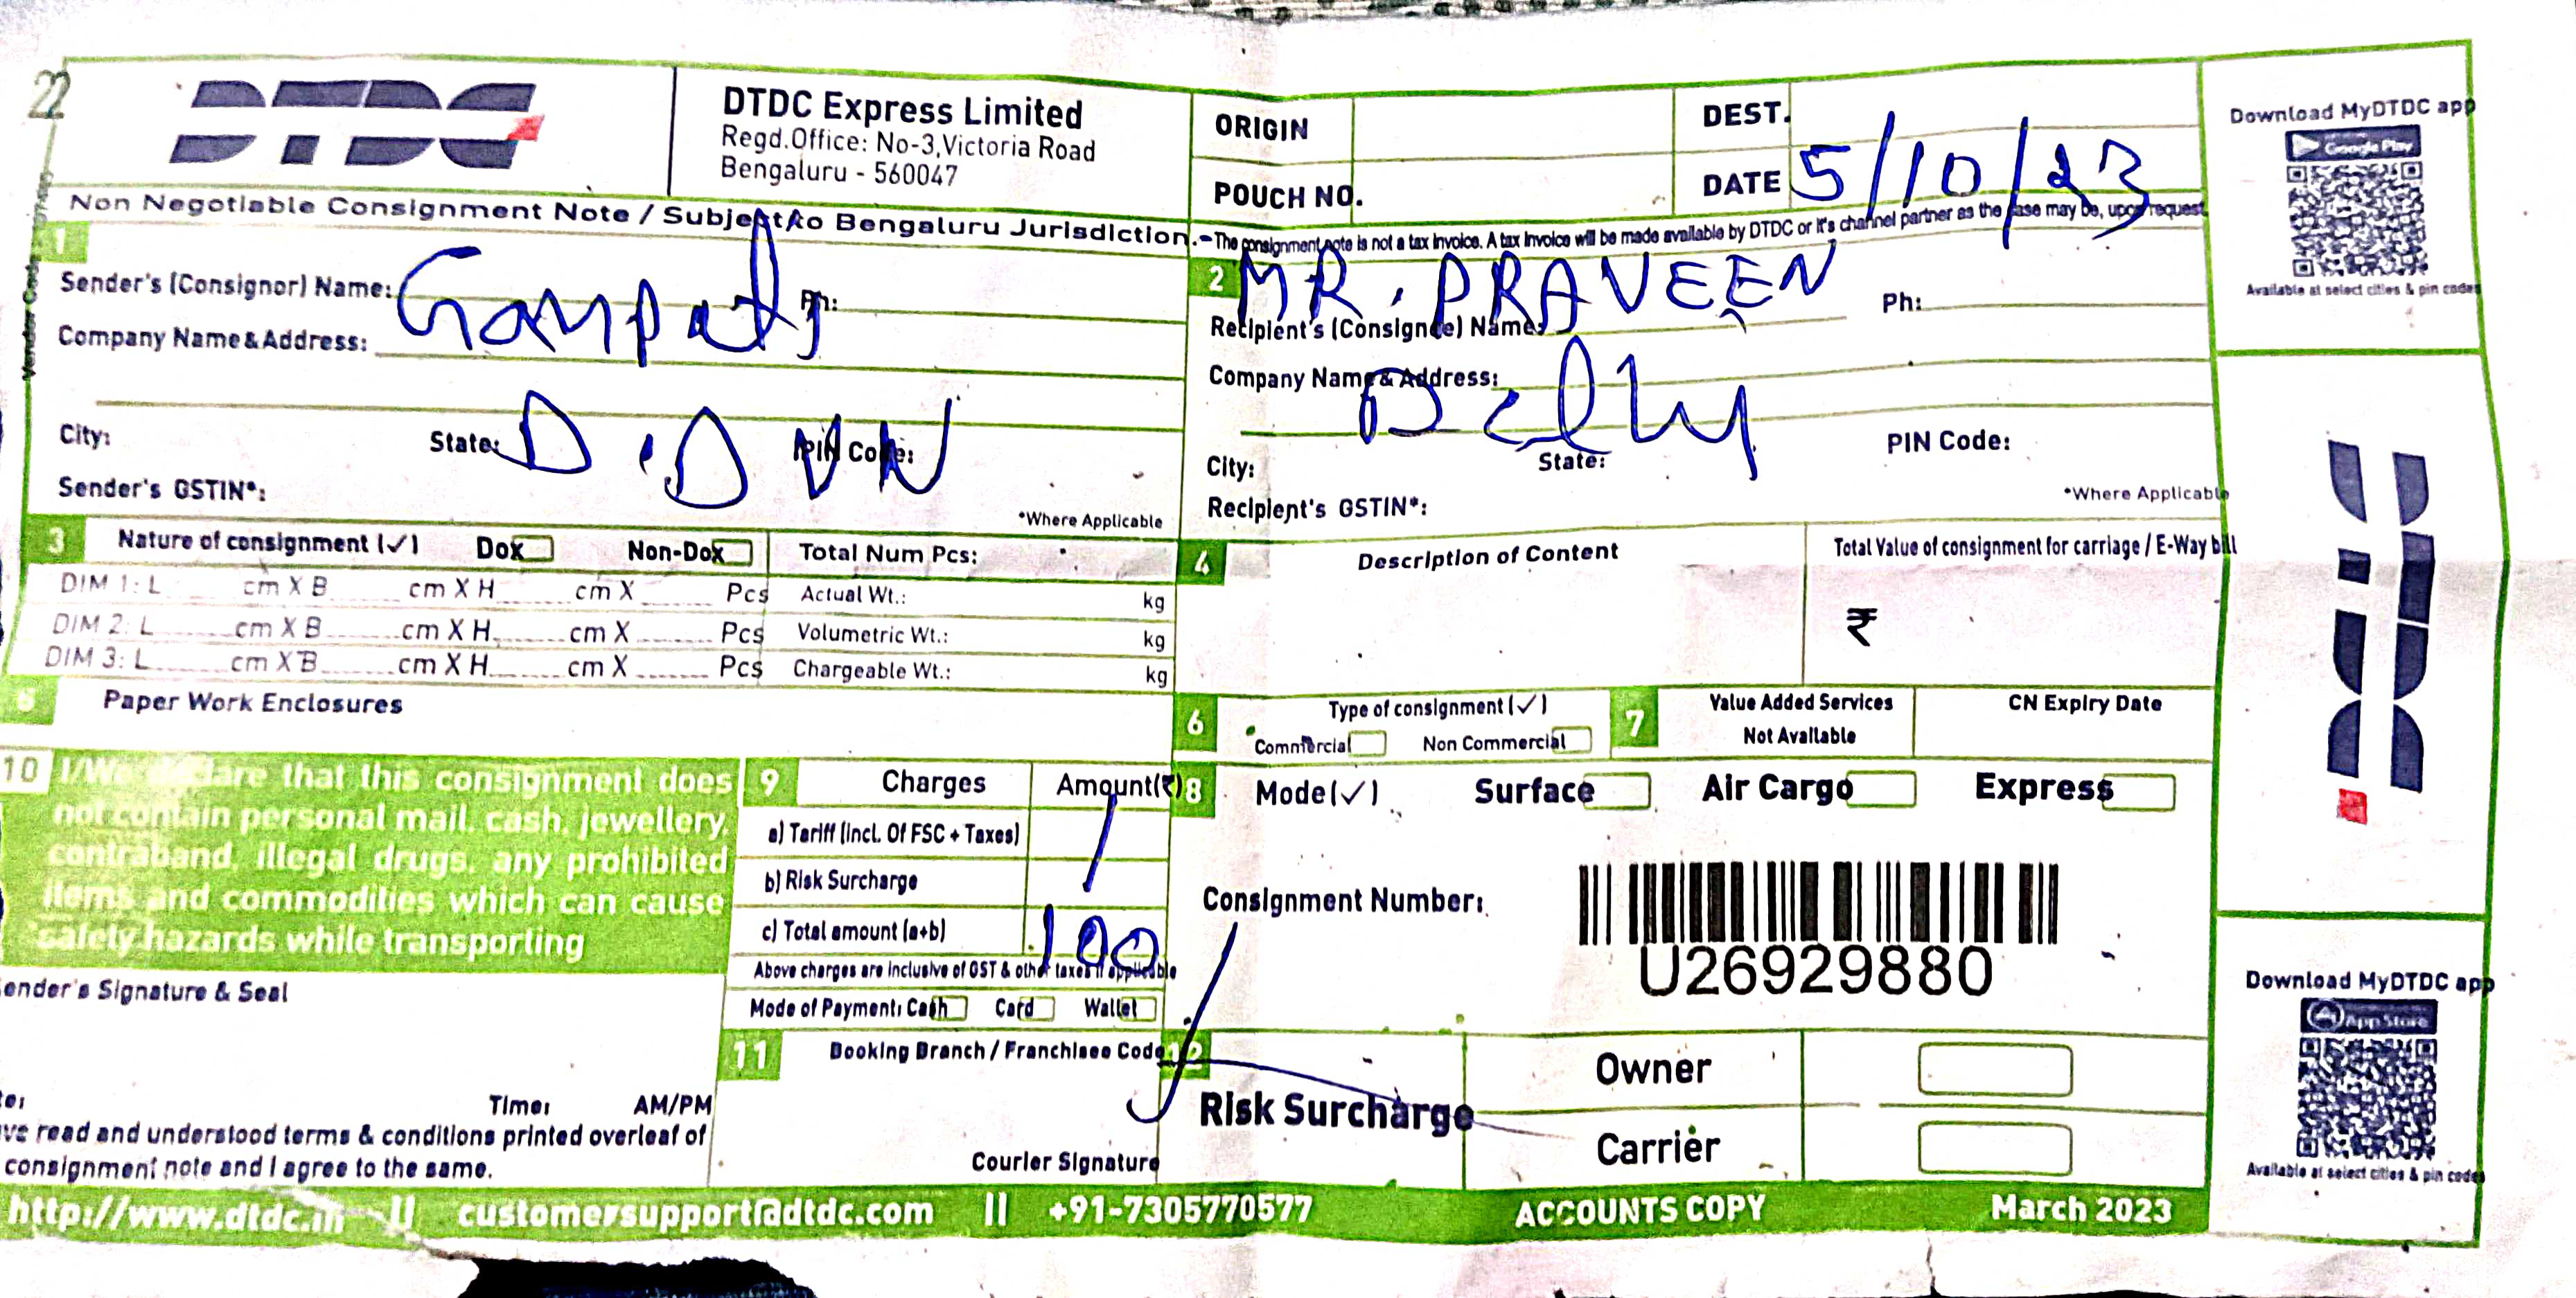 22
DTDC
DTDC Express Limited
Regd.Office: No-3,Victoria Road
Bengaluru - 560047
ORIGIN
DEST.
POUCH NO.
DATE 5/10/23
Non Negotiable Consignment Note / Subject to Bengaluru Jurisdiction.-The consignment note is not a tax invoice. A tax invoice will be made available by DTDC or it's channel partner as the case may be, upon request
1
Sender's (Consignor) Name: Ganpati Ph:
Company Name & Address:
City: State: PIN Code:
D.DUN
Sender's GSTIN*:
*Where Applicable
2 MR. PRAVEEN
Recipient's (Consignee) Name: Ph:
Company Name & Address:
Delhy
City: State: PIN Code:
Recipient's GSTIN*:
*Where Applicable
3 Nature of consignment (✓) Dox Non-Dox Total Num Pcs:
DIM 1: L cm X B cm X H cm X Pcs Actual Wt.: kg
DIM 2: L cm X B cm X H cm X Pcs Volumetric Wt.: kg
DIM 3: L cm X B cm X H cm X Pcs Chargeable Wt.: kg
4 Description of Content
Total Value of consignment for carriage / E-Way bill
₹
5 Paper Work Enclosures
6 Type of consignment (✓)
Commercial Non Commercial
7 Value Added Services
Not Available
CN Expiry Date
10 I/We declare that this consignment does
not contain personal mail, cash, jewellery,
contraband, illegal drugs, any prohibited
items and commodities which can cause
safety hazards while transporting
9 Charges Amount(₹)
a) Tariff (incl. Of FSC + Taxes)
b) Risk Surcharge
c) Total amount (a+b) 100
Above charges are inclusive of GST & other taxes if applicable
Mode of Payment: Cash Card Wallet
8 Mode(✓) Surface Air Cargo Express
Consignment Number:
U26929880
ender's Signature & Seal
te: Time: AM/PM
ve read and understood terms & conditions printed overleaf of
consignment note and I agree to the same.
11 Booking Branch / Franchisee Code
Courier Signature
12
Risk Surcharge
Owner
Carrier
http://www.dtdc.in || customersupport@dtdc.com || +91-7305770577 ACCOUNTS COPY March 2023
Download MyDTDC app
Google Play
Available at select cities & pin codes
DTDC
Download MyDTDC app
App Store
Available at select cities & pin codes